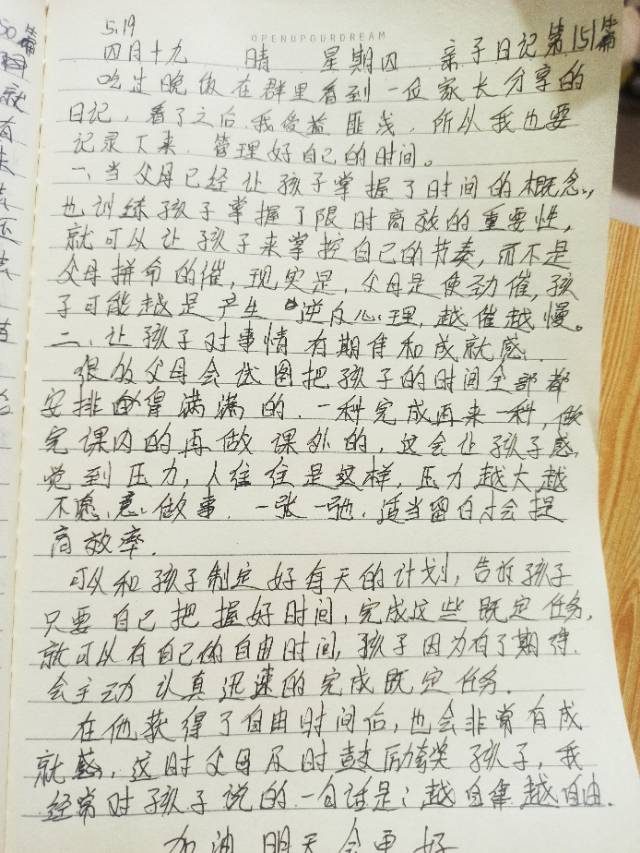 5.19
OPENUPOURDREAM
四月十九 晴 星期四 亲子日记第151篇
吃过晚饭在群里看到一位家长分享的
日记，看了之后，我受益匪浅，所以我也要
记录下来，管理好自己的时间。
一、当父母已经让孩子掌握了时间的概念，
也训练孩子掌握了限时高效的重要性，
就可以让孩子来掌控自己的节奏，而不是
父母拼命的催，现实是，父母是使劲催，孩
子可能越是产生逆反心理，越催越慢。
二、让孩子对事情有期待和成就感.
很多父母会试图把孩子的时间全部都
安排的满满的.一科完成再来一科，做
完课内的再做课外的，这会让孩子感
觉到压力，人往往是这样，压力越大越
不愿意做事.一张一弛.适当留白才会提
高效率.
可以和孩子制定好每天的计划，告诉孩子
只要自己把握好时间，完成这些既定任务，
就可以有自己的自由时间，孩子因为有了期待.
会主动认真迅速的完成既定任务.
在他获得了自由时间后，也会非常有成
就感，这时父母及时鼓励夸奖孩子，我
经常对孩子说的一句话是：越自律越自由.
加油明天会更好